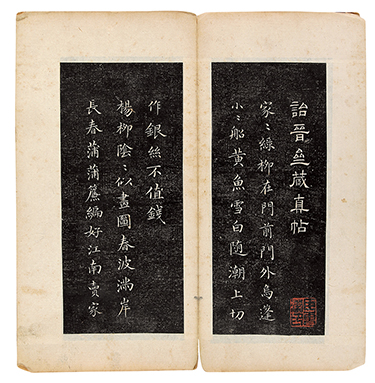 詒晉齋藏真帖
家〻綠柳在門前門外烏篷
小〻船黃魚雪白随潮上切
作銀絲不值錢
楊柳陰〻似畫圖春波滿岸
長春蒲蒲簾編好江南賣家